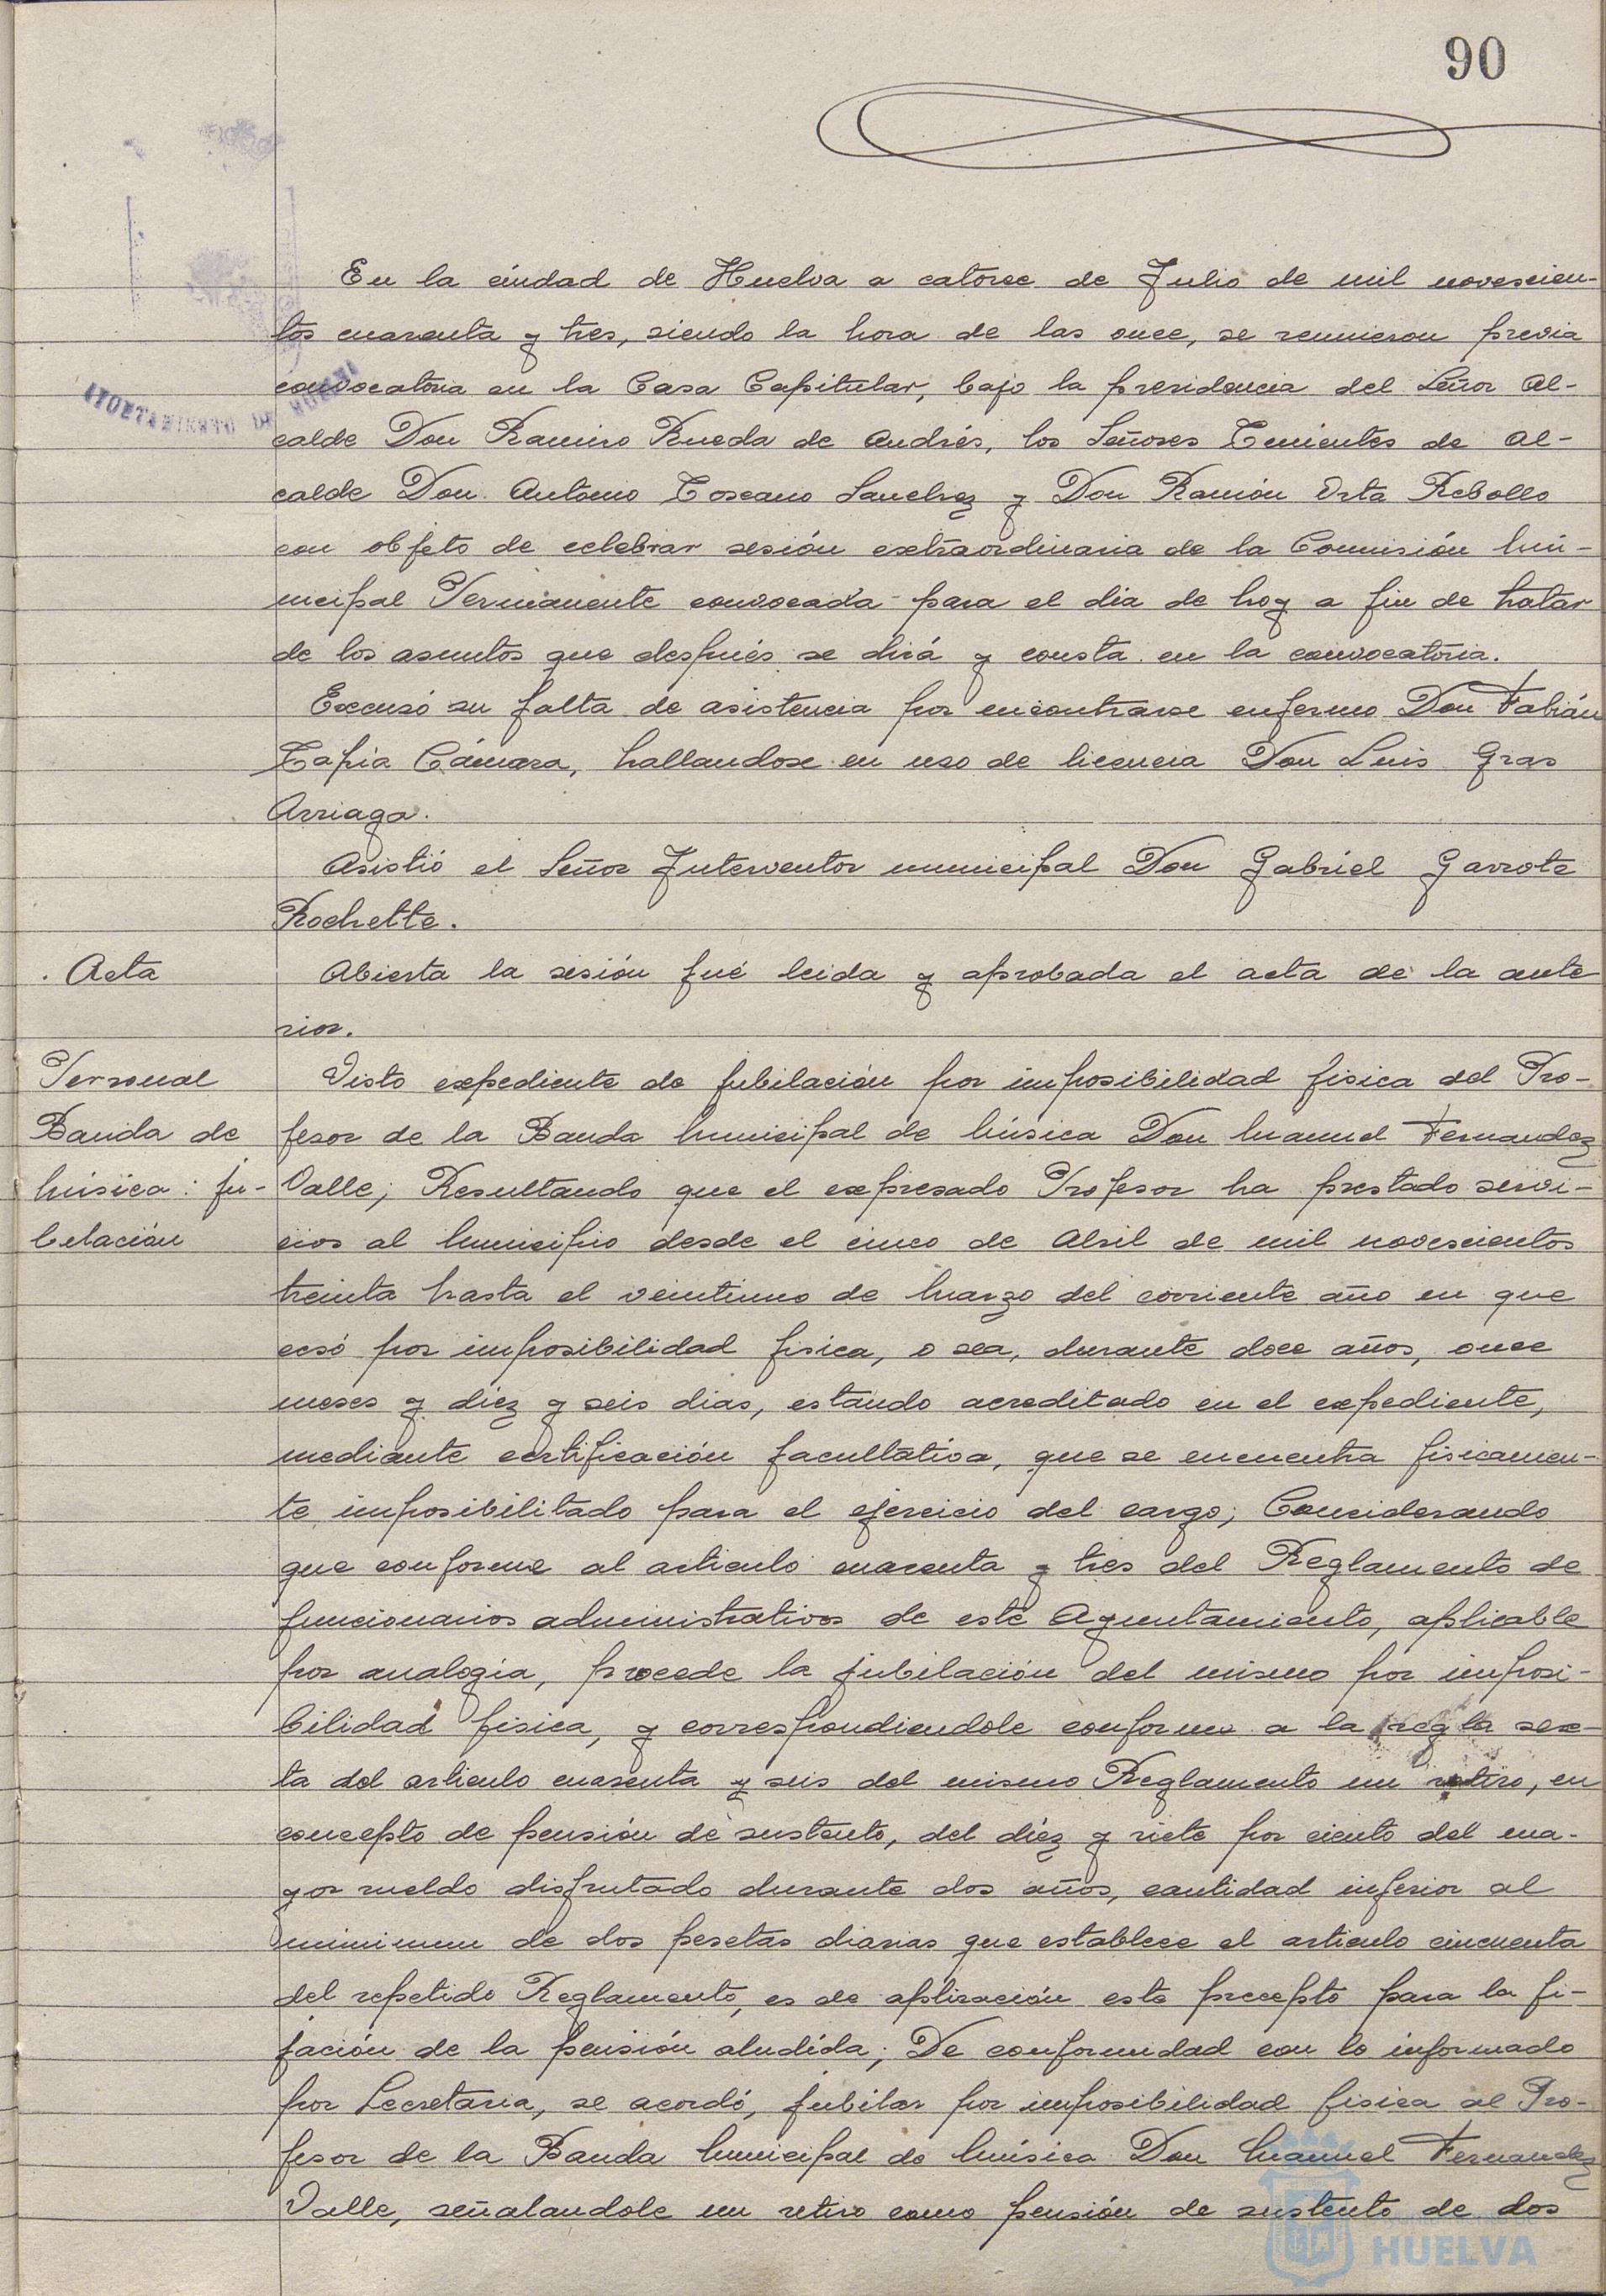 90
En la ciudad de Huelva a catorce de Julio de mil novescien-
tos cuarenta y tres, siendo la hora de las once, se reunieron previa
convocatoria en la Casa Capitular, bajo la presidencia del Señor Al-
AYUNTAMIENTO DE HUELVA
calde Don Ramiro Rueda de Andrés, los Señores Tenientes de Al-
calde Don Antonio Toscano Sanchez y Don Ramón Orta Rebollo
con objeto de celebrar sesión extraordinaria de la Comisión Mu-
nicipal Permanente convocada para el dia de hoy a fin de tratar
de los asuntos que después se dirá y consta en la convocatoria.
Excusó su falta de asistencia por encontrarse enfermo Don Fabián
Tapia Cámara, hallandose en uso de licencia Don Luis Gras
Arriaga.
Asistió el Señor Interventor municipal Don Gabriel Garrote
Rochette.
Acta
Abierta la sesión fué leida y aprobada el acta de la ante
rior.
Personal
Banda de
Música: ju-
bilación
Visto expediente de jubilación por imposibilidad fisica del Pro-
fesor de la Banda Municipal de Música Don Manuel Fernandez
Valle; Resultando que el expresado Profesor ha prestado servi-
cios al Municipio desde el cinco de Abril de mil novescientos
treinta hasta el veintiuno de Marzo del corriente año en que
cesó por imposibilidad fisica, o sea, durante doce años, once
meses y diez y seis dias, estando acreditado en el expediente,
mediante certificación facultativa, que se encuentra fisicamen-
te imposibilitado para el ejercicio del cargo; Considerando
que conforme al articulo cuarenta y tres del Reglamento de
funcionarios administrativos de este Ayuntamiento, aplicable
por analogia, procede la jubilación del mismo por imposi-
bilidad fisica, y correspondiendole conforme a la regla sex-
ta del articulo cuarenta y seis del mismo Reglamento un retiro, en
concepto de pensión de sustento, del diez y siete por ciento del ma-
yor sueldo disfrutado durante dos años, cantidad inferior al
minimum de dos pesetas diarias que establece el articulo cincuenta
del repetido Reglamento, es de aplicación este precepto para la fi-
jación de la pensión aludida; De conformidad con lo informado
por Secretaria, se acordó, jubilar por imposibilidad fisica al Pro-
fesor de la Banda Municipal de Música Don Manuel Fernandez
Valle, señalandole un retiro como pensión de sustento de dos
HUELVA